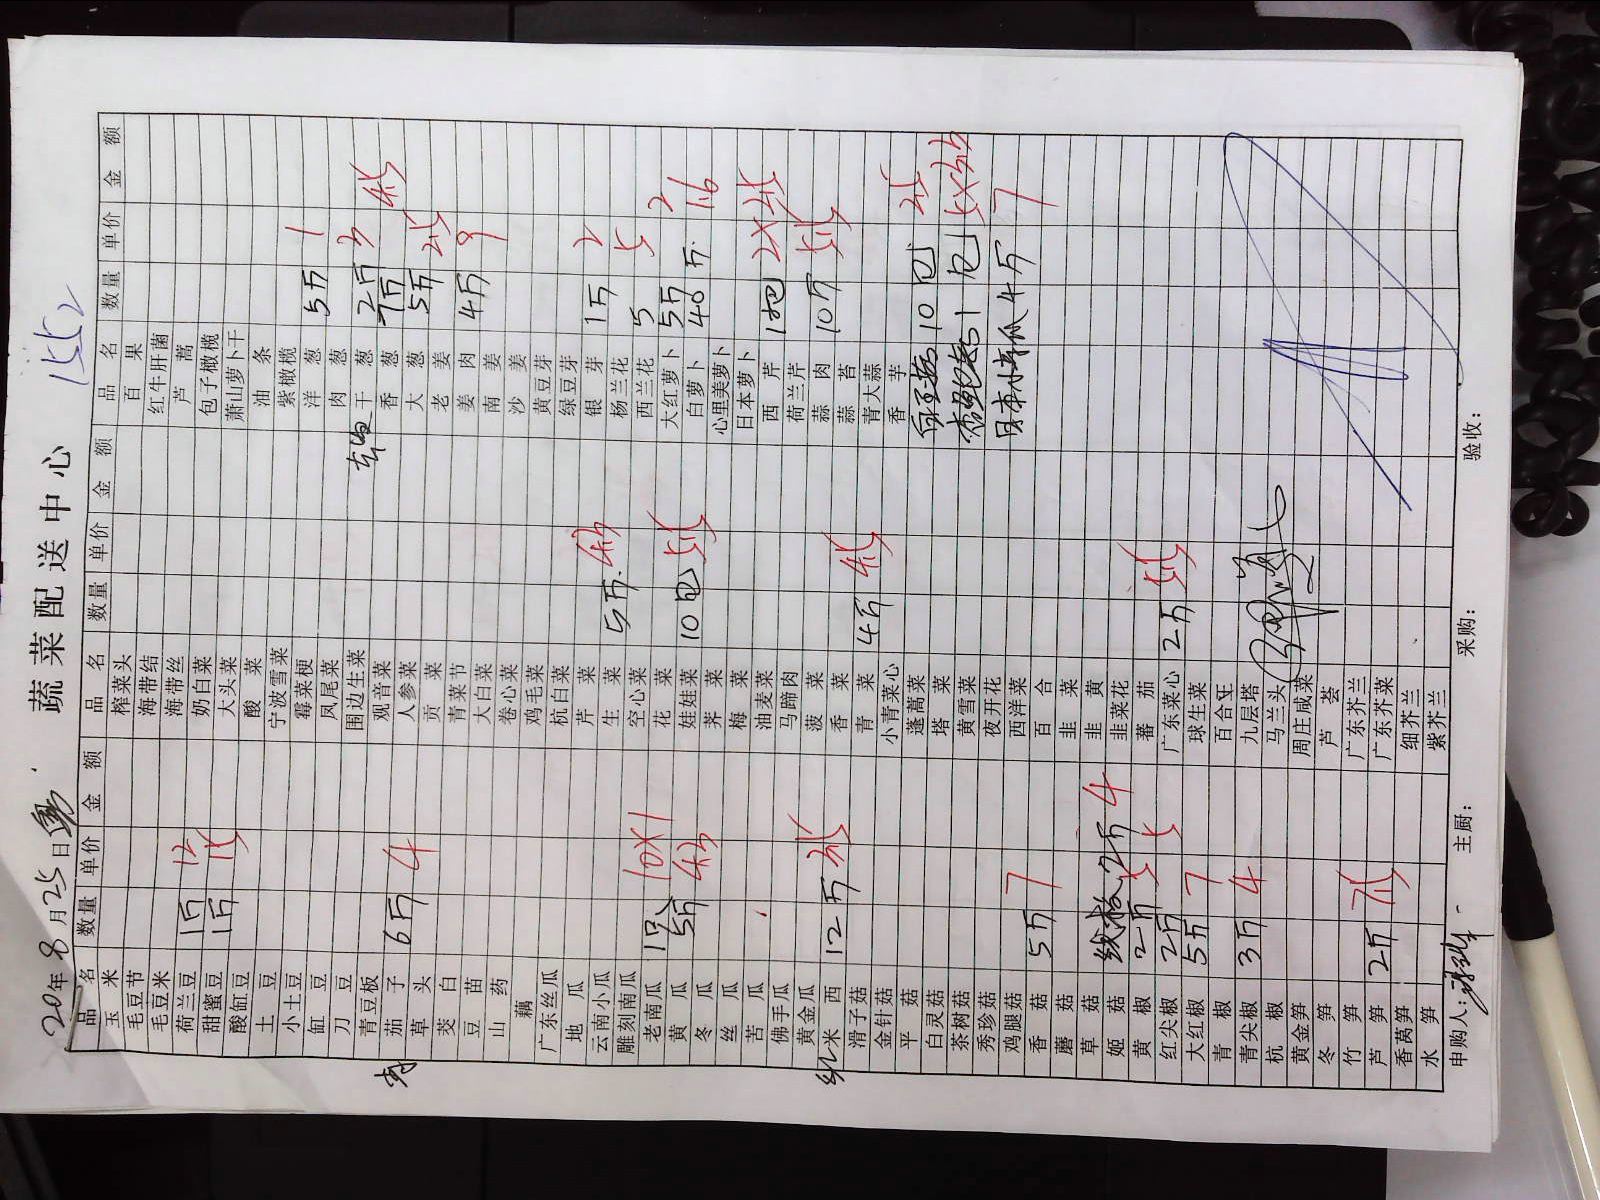 蔬菜配送中心
1552
20年8月25日
品名 数量 单价 金额
玉米
毛豆节
毛豆米
荷兰豆 1斤 12
甜蜜豆 1斤 15
酸缸豆
土豆
小土豆
缸豆
刀豆
青豆板
茄子 6斤 4
草头
茭白
豆苗
山药
藕
广东丝瓜
地瓜
云南小瓜
雕刻南瓜
老南瓜 1只 10X1
黄瓜 5斤 4.5
冬瓜
丝瓜
苦瓜
佛手瓜
黄金瓜
米西 12斤 3.5
滑子菇
金针菇
平菇
白灵菇
茶树菇
秀珍菇
鸡腿菇
香菇 5斤 7
蘑菇
草菇
姬菇 线椒 2斤 4
黄椒 2斤 5
红尖椒 2斤 5
大红椒 5斤 7
青椒
青尖椒 3斤 4
杭椒
黄金笋
冬笋
竹笋
芦笋 2斤 7.5
香莴笋
水笋
品名 数量 单价 金额
榨菜头
海带结
海带丝
奶白菜
大头菜
酸菜
宁波雪菜
霉菜梗
凤尾菜
围边生菜
观音菜
人参菜
贡菜
青菜节
大白菜
卷心菜
鸡毛菜
杭白菜
芹菜
生菜 5斤 4.5
空心菜
花菜
娃娃菜 10包 5.5
荠菜
梅菜
油麦菜
马蹄肉
菠菜
香菜
青菜 4斤 4.5
小青菜心
蓬蒿菜
塔菜
黄雪菜
夜开花
西洋菜
百合
韭菜
韭黄
韭菜花
番茄
广东菜心 2斤 5.5
球生菜
百合王
九层塔
马兰头
周庄咸菜
芦荟
广东芥兰
广东芥菜
细芥兰
紫芥兰
品名 数量 单价 金额
百果
红牛肝菌
芦蒿
包子橄榄
萧山萝卜干
油条
紫橄榄
洋葱 5斤 1
肉葱
干葱 2斤 3
香葱 1斤 4.5
大葱 5斤 2.5
老姜
姜肉 4斤 9
南姜
沙姜
黄豆芽
绿豆芽
银芽 1斤 2
杨兰花
西兰花 5 5
大红萝卜 5斤 2
白萝卜 40斤 1.6
心里美萝卜
日本萝卜
西芹 1把 2X2.5
荷兰芹
蒜肉 10斤 5.5
蒜苔
青大蒜
香芋
白玉菇 10包 2.5
杏鲍菇 1包
日本小青瓜 4斤 7
申购人:
主厨:
采购:
验收: